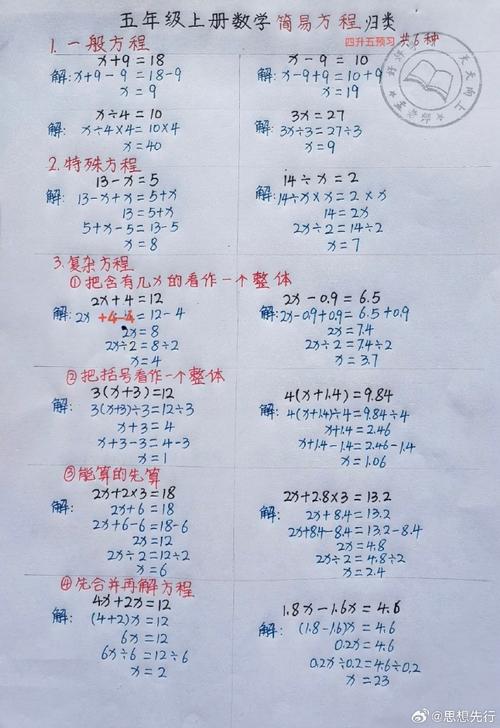 五年级上册数学 简易方程 归类
四升五预习 共6种
好好 天天向上
1. 一般方程
x+9=18
解: x+9-9=18-9
x=9
x-9=10
解: x-9+9=10+9
x=19
x÷4=10
解: x÷4×4=10×4
x=40
3x=27
解: 3x÷3=27÷3
x=9
2. 特殊方程
13-x=5
解: 13-x+x=5+x
13=5+x
5+x-5=13-5
x=8
14÷x=2
解: 14÷x×x=2×x
14=2x
2x÷2=14÷2
x=7
3. 复杂方程
①把含有几x的看作一个整体
2x+4=12
解: 2x+4-4=12-4
2x=8
2x÷2=8÷2
x=4
2x-0.9=6.5
解: 2x-0.9+0.9=6.5+0.9
2x=7.4
2x÷2=7.4÷2
x=3.7
②把括号看作一个整体
3(x+3)=12
解: 3(x+3)÷3=12÷3
x+3=4
x+3-3=4-3
x=1
4(x+1.4)=9.84
解: 4(x+1.4)÷4=9.84÷4
x+1.4=2.46
x+1.4-1.4=2.46-1.4
x=1.06
③能算的先算
2x+2×3=18
解: 2x+6=18
2x+6-6=18-6
2x=12
2x÷2=12÷2
x=6
2x+2.8×3=13.2
解: 2x+8.4=13.2
2x+8.4-8.4=13.2-8.4
2x=4.8
2x÷2=4.8÷2
x=2.4
④先合并再解方程
4x+2x=12
解: (4+2)x=12
6x=12
6x÷6=12÷6
x=2
1.8x-1.6x=4.6
解: (1.8-1.6)x=4.6
0.2x=4.6
0.2x÷0.2=4.6÷0.2
x=23
@思想先行